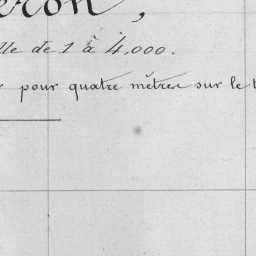 eron,
lle de 1 à 4,000.
pour quatre mètres sur le t